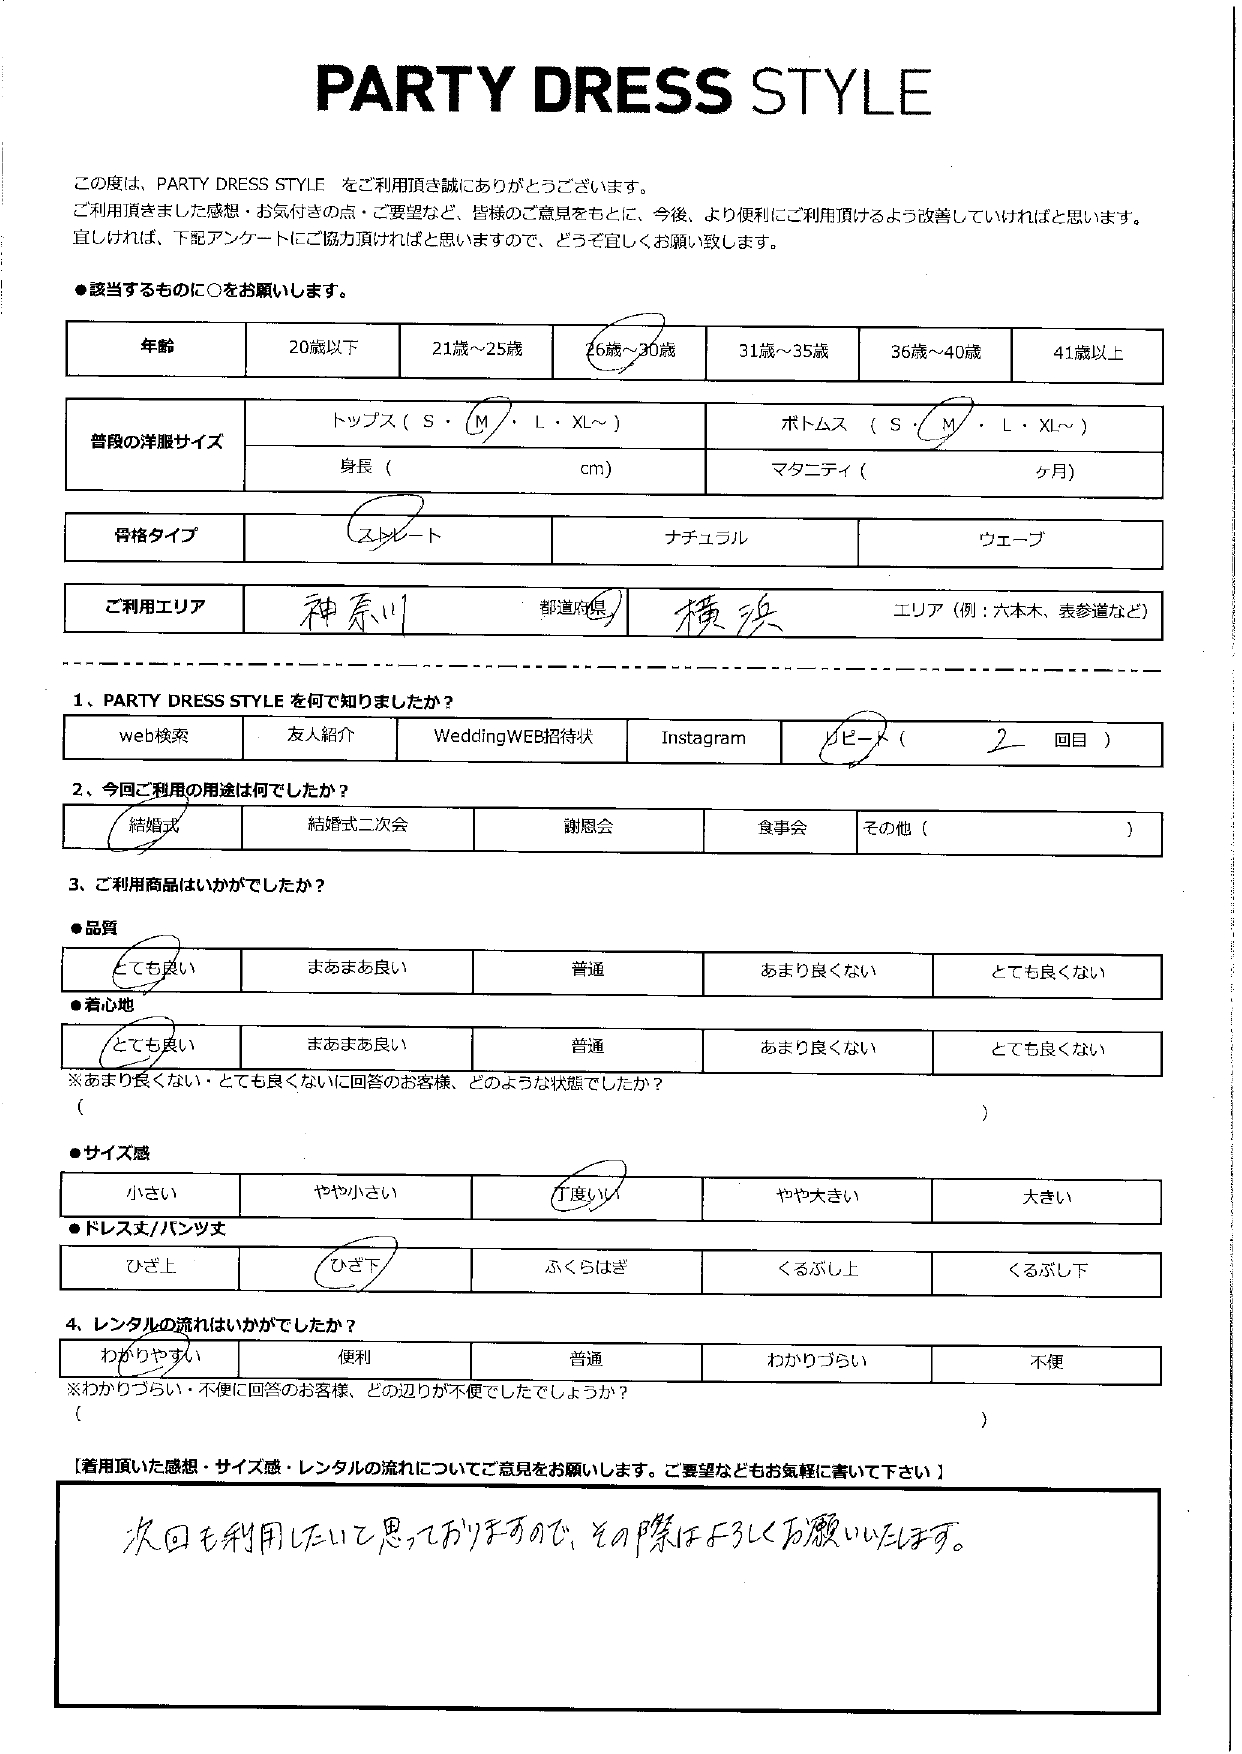 PARTY DRESS STYLE
この度は、PARTY DRESS STYLE をご利用頂き誠にありがとうございます。
ご利用頂きました感想・お気付きの点・ご要望など、皆様のご意見をもとに、今後、より便利にご利用頂けるよう改善していければと思います。
宜しければ、下記アンケートにご協力頂ければと思いますので、どうぞ宜しくお願い致します。
●該当するものに○をお願いします。
年齢 20歳以下 21歳～25歳 26歳～30歳 31歳～35歳 36歳～40歳 41歳以上
普段の洋服サイズ トップス ( S ・ M ・ L ・ XL～ ) ボトムス ( S ・ M ・ L ・ XL～ )
身長 ( cm) マタニティ ( ヶ月)
骨格タイプ ストレート ナチュラル ウェーブ
ご利用エリア 神奈川 都道府県 横浜 エリア（例：六本木、表参道など）
1、PARTY DRESS STYLE を何で知りましたか？
web検索 友人紹介 WeddingWEB招待状 Instagram リピート ( 2 回目 )
2、今回ご利用の用途は何でしたか？
結婚式 結婚式二次会 謝恩会 食事会 その他 ( )
3、ご利用商品はいかがでしたか？
●品質
とても良い まあまあ良い 普通 あまり良くない とても良くない
●着心地
とても良い まあまあ良い 普通 あまり良くない とても良くない
※あまり良くない・とても良くないに回答のお客様、どのような状態でしたか？
( )
●サイズ感
小さい やや小さい 丁度いい やや大きい 大きい
●ドレス丈/パンツ丈
ひざ上 ひざ下 ふくらはぎ くるぶし上 くるぶし下
4、レンタルの流れはいかがでしたか？
わかりやすい 便利 普通 わかりづらい 不便
※わかりづらい・不便に回答のお客様、どの辺りが不便でしたでしょうか？
( )
【着用頂いた感想・サイズ感・レンタルの流れについてご意見をお願いします。ご要望などもお気軽に書いて下さい】
次回も利用したいと思っておりますので、その際はよろしくお願いいたします。